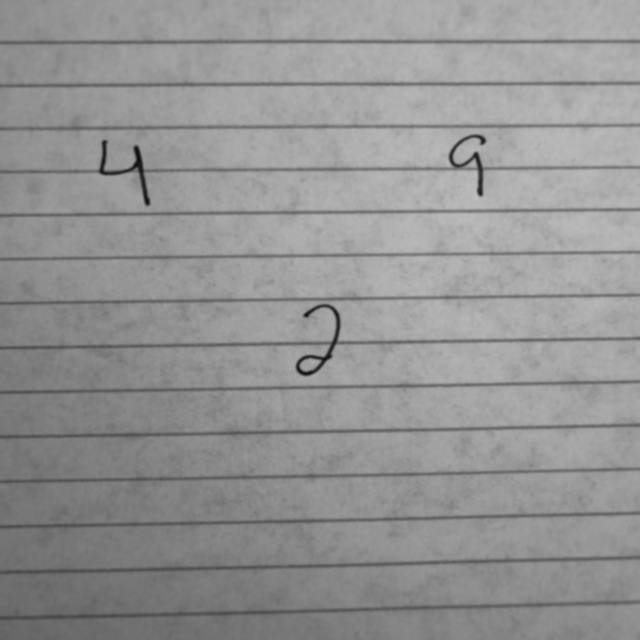 4 9
2